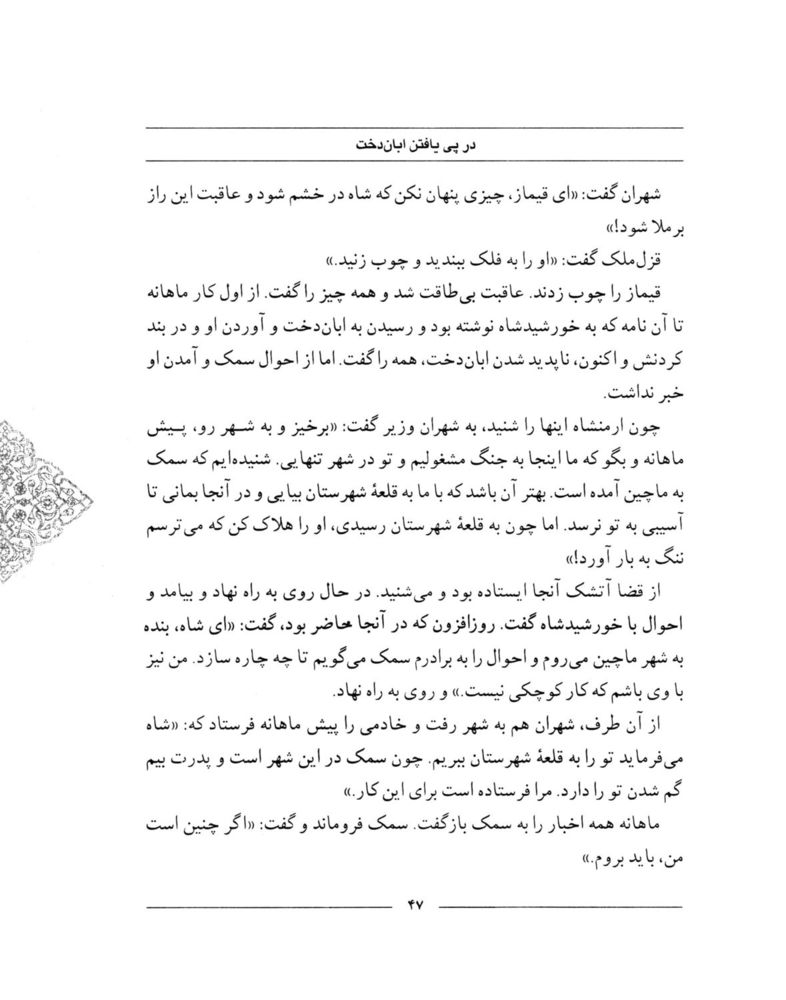 در پی یافتن ابان‌دخت
شهران گفت: «ای قیماز، چیزی پنهان نکن که شاه در خشم شود و عاقبت این راز
برملا شود!»
قزل‌ملک گفت: «او را به فلک ببندید و چوب زنید.»
قیماز را چوب زدند. عاقبت بی‌طاقت شد و همه چیز را گفت. از اول کار ماهانه
تا آن نامه که به خورشیدشاه نوشته بود و رسیدن به ابان‌دخت و آوردن او و در بند
کردنش و اکنون، ناپدید شدن ابان‌دخت، همه را گفت. اما از احوال سمک و آمدن او
خبر نداشت.
چون ارمنشاه اینها را شنید، به شهران وزیر گفت: «برخیز و به شهر رو، پیش
ماهانه و بگو که ما اینجا به جنگ مشغولیم و تو در شهر تنهایی. شنیده‌ایم که سمک
به ماچین آمده است. بهتر آن باشد که با ما به قلعهٔ شهرستان بیایی و در آنجا بمانی تا
آسیبی به تو نرسد. اما چون به قلعهٔ شهرستان رسیدی، او را هلاک کن که می‌ترسم
ننگ به بار آورد!»
از قضا آتشک آنجا ایستاده بود و می‌شنید. در حال روی به راه نهاد و بیامد و
احوال با خورشیدشاه گفت. روزافزون که در آنجا حاضر بود، گفت: «ای شاه، بنده
به شهر ماچین می‌روم و احوال را به برادرم سمک می‌گویم تا چه چاره سازد. من نیز
با وی باشم که کار کوچکی نیست.» و روی به راه نهاد.
از آن طرف، شهران هم به شهر رفت و خادمی را پیش ماهانه فرستاد که: «شاه
می‌فرماید تو را به قلعهٔ شهرستان ببریم. چون سمک در این شهر است و پدرت بیم
گم شدن تو را دارد. مرا فرستاده است برای این کار.»
ماهانه همه اخبار را به سمک بازگفت. سمک فروماند و گفت: «اگر چنین است
من، باید بروم.»
۴۷